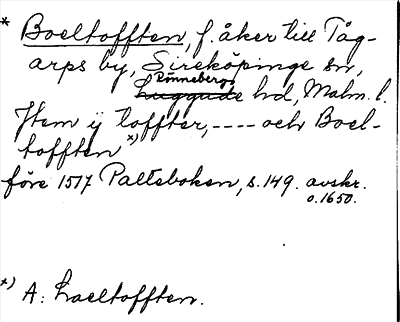 * Boeltofften, f. åker till Tåg-
arps by, Sireköpinge sn,
Rönnebergs
Luggude hd, Malm. l.
Item ij toffter, ---- och Boel-
tofften *)
före 1517 Palteboken, s. 149. avskr.
o. 1650.
*) A: Loeltofften.